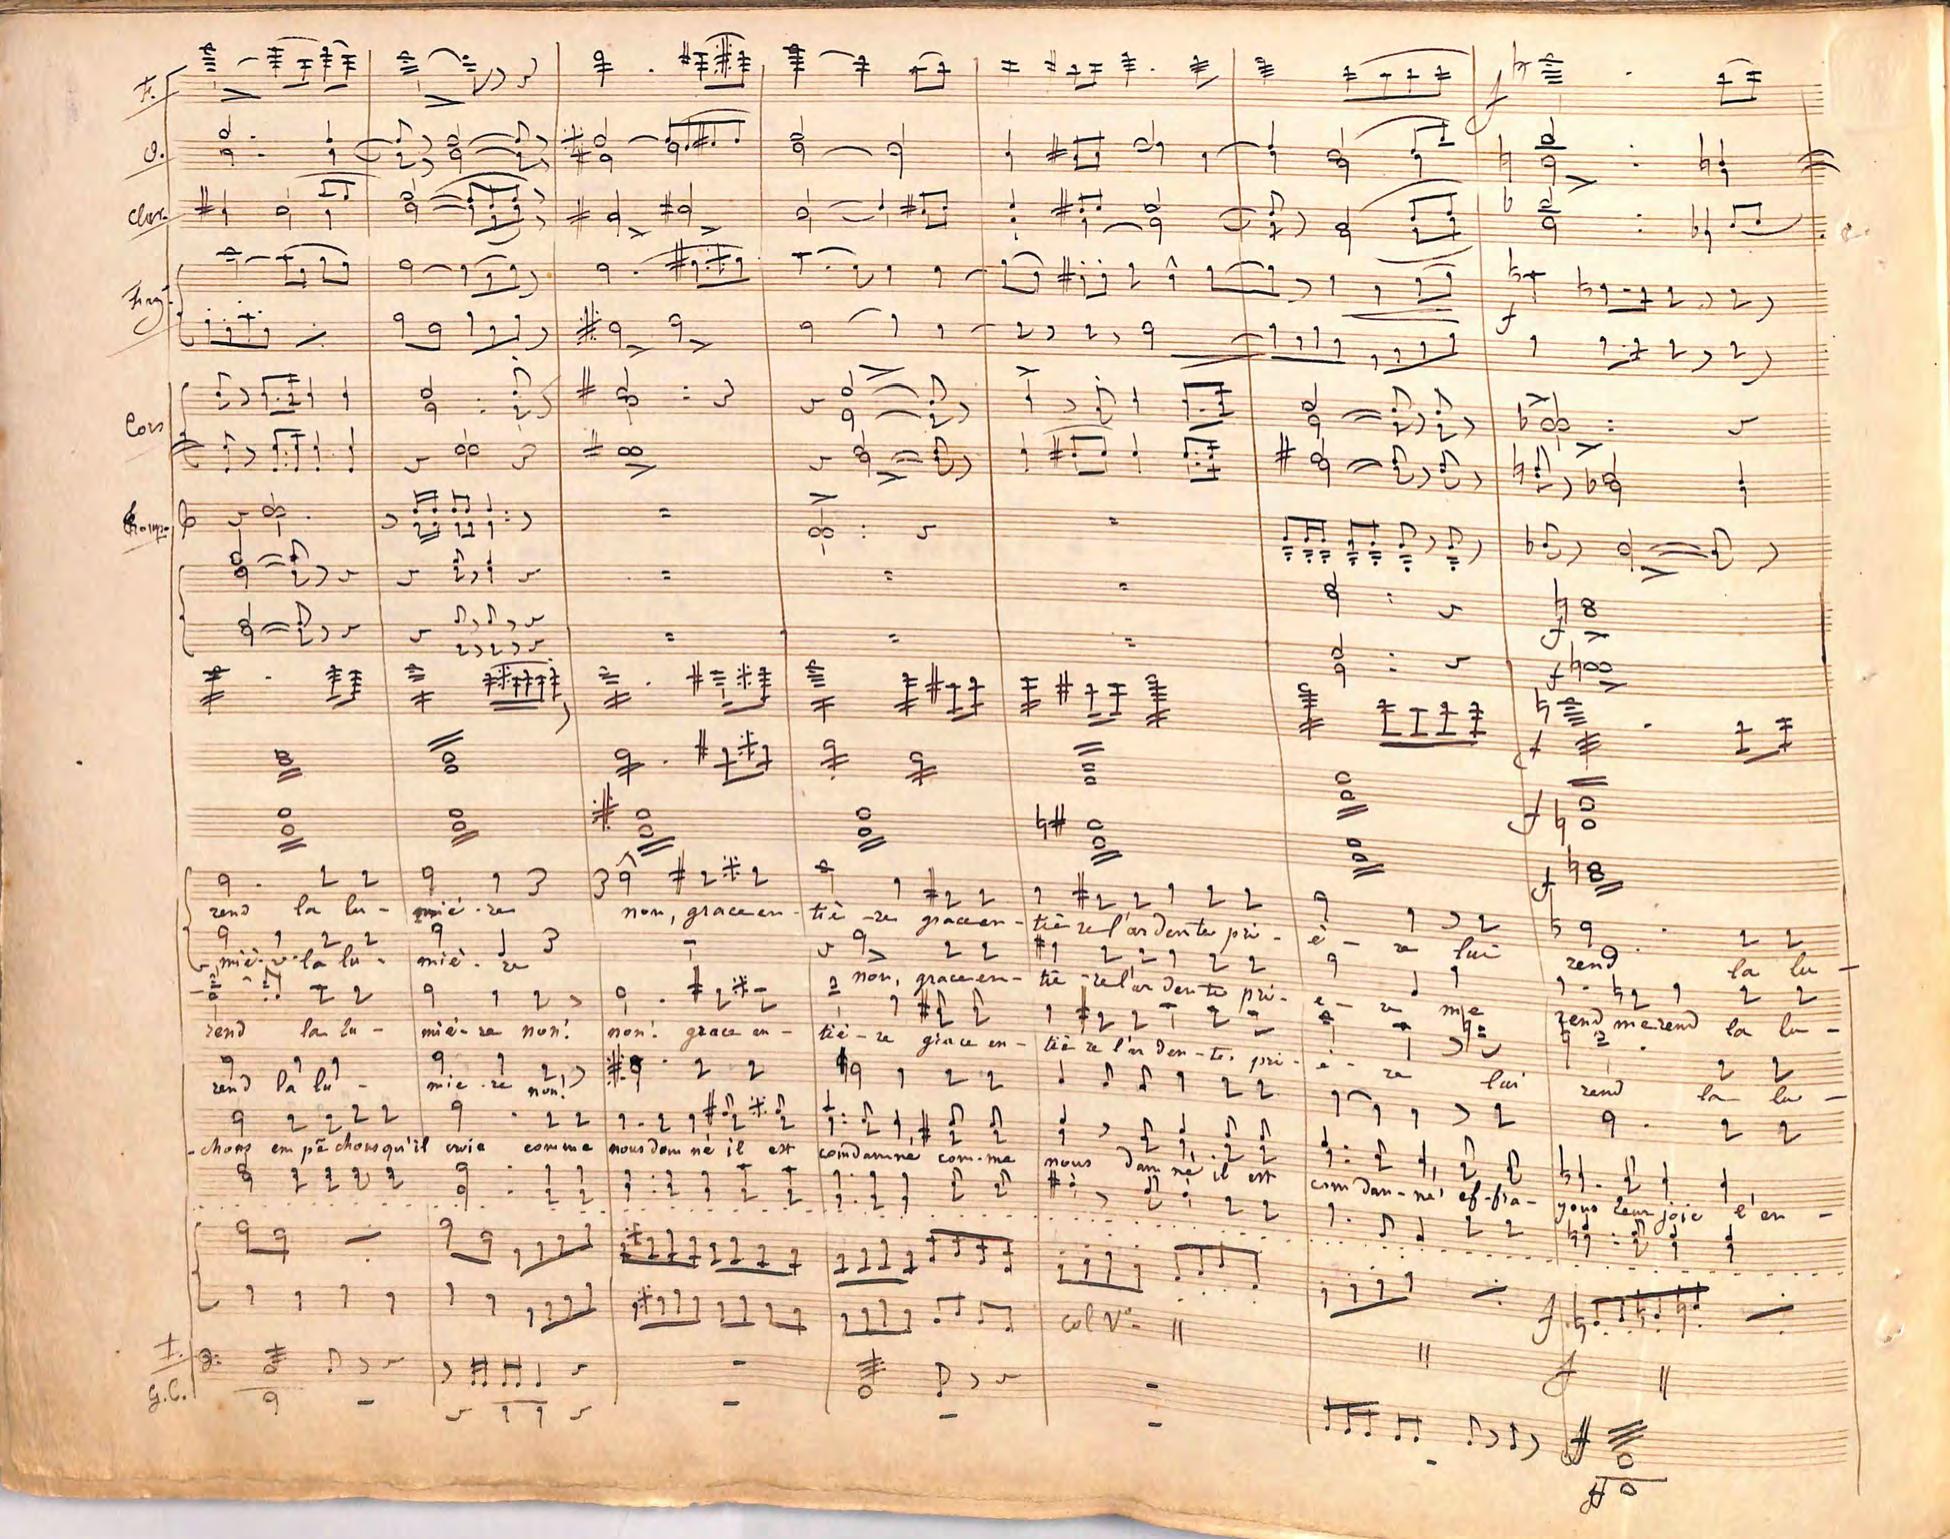 F.
O.
Clar.
Fag.
Cors
Tromp.
rend la lu - miè - re non, grace en - tiè - re grace en - tière l'ardente pri - è - re lui rend la lu -
miè - re la lu - miè - re non, grace en - tiè - re l'ardente pri - è - re me rend me rend la lu -
rend la lu - miè - re non! non! grace en - tiè - re grace en - tière l'arden - te pri - è - re lui rend la lu -
rend la lu - mie - re non!
- chons empêchons qu'il croie comme nous damné il est condamné comme nous damné il est condam - né ef - fra - yons leur joie l'en -
col Vc.
T.
G.C.